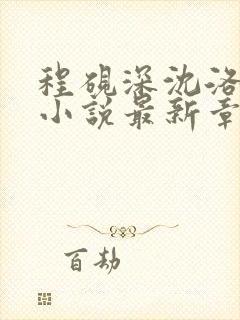 程砚深沈洛
小说最新章
百劫